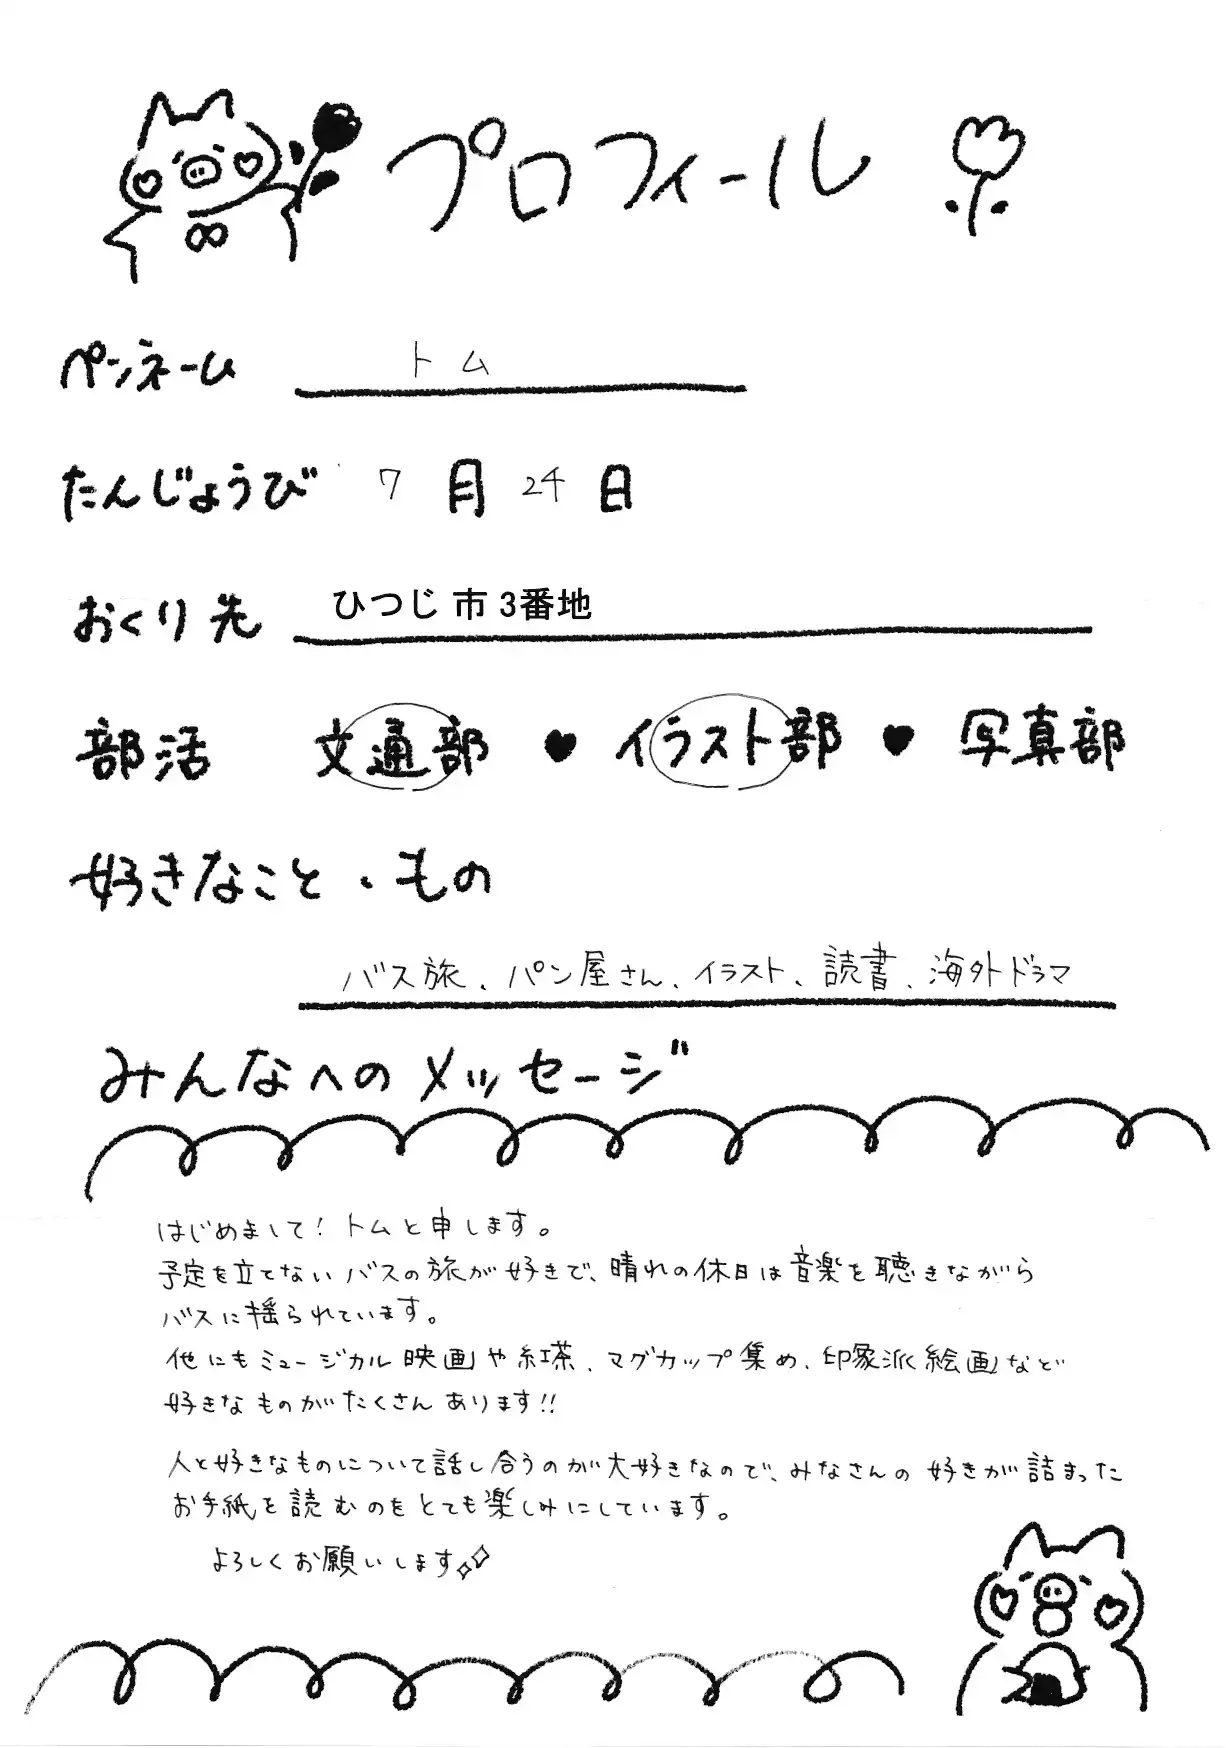 プロフィール
ペンネーム トム
たんじょうび 7月24日
おくり先 ひつじ市3番地
部活 文通部 ♥ イラスト部 ♥ 写真部
好きなこと・もの
バス旅、パン屋さん、イラスト、読書、海外ドラマ
みんなへのメッセージ
はじめまして!トムと申します。
予定を立てないバスの旅が好きで、晴れの休日は音楽を聴きながら
バスに揺られています。
他にもミュージカル映画や紅茶、マグカップ集め、印象派絵画など
好きなものがたくさんあります!!
人と好きなものについて話し合うのが大好きなので、みなさんの好きが詰まった
お手紙を読むのをとても楽しみにしています。
よろしくお願いします